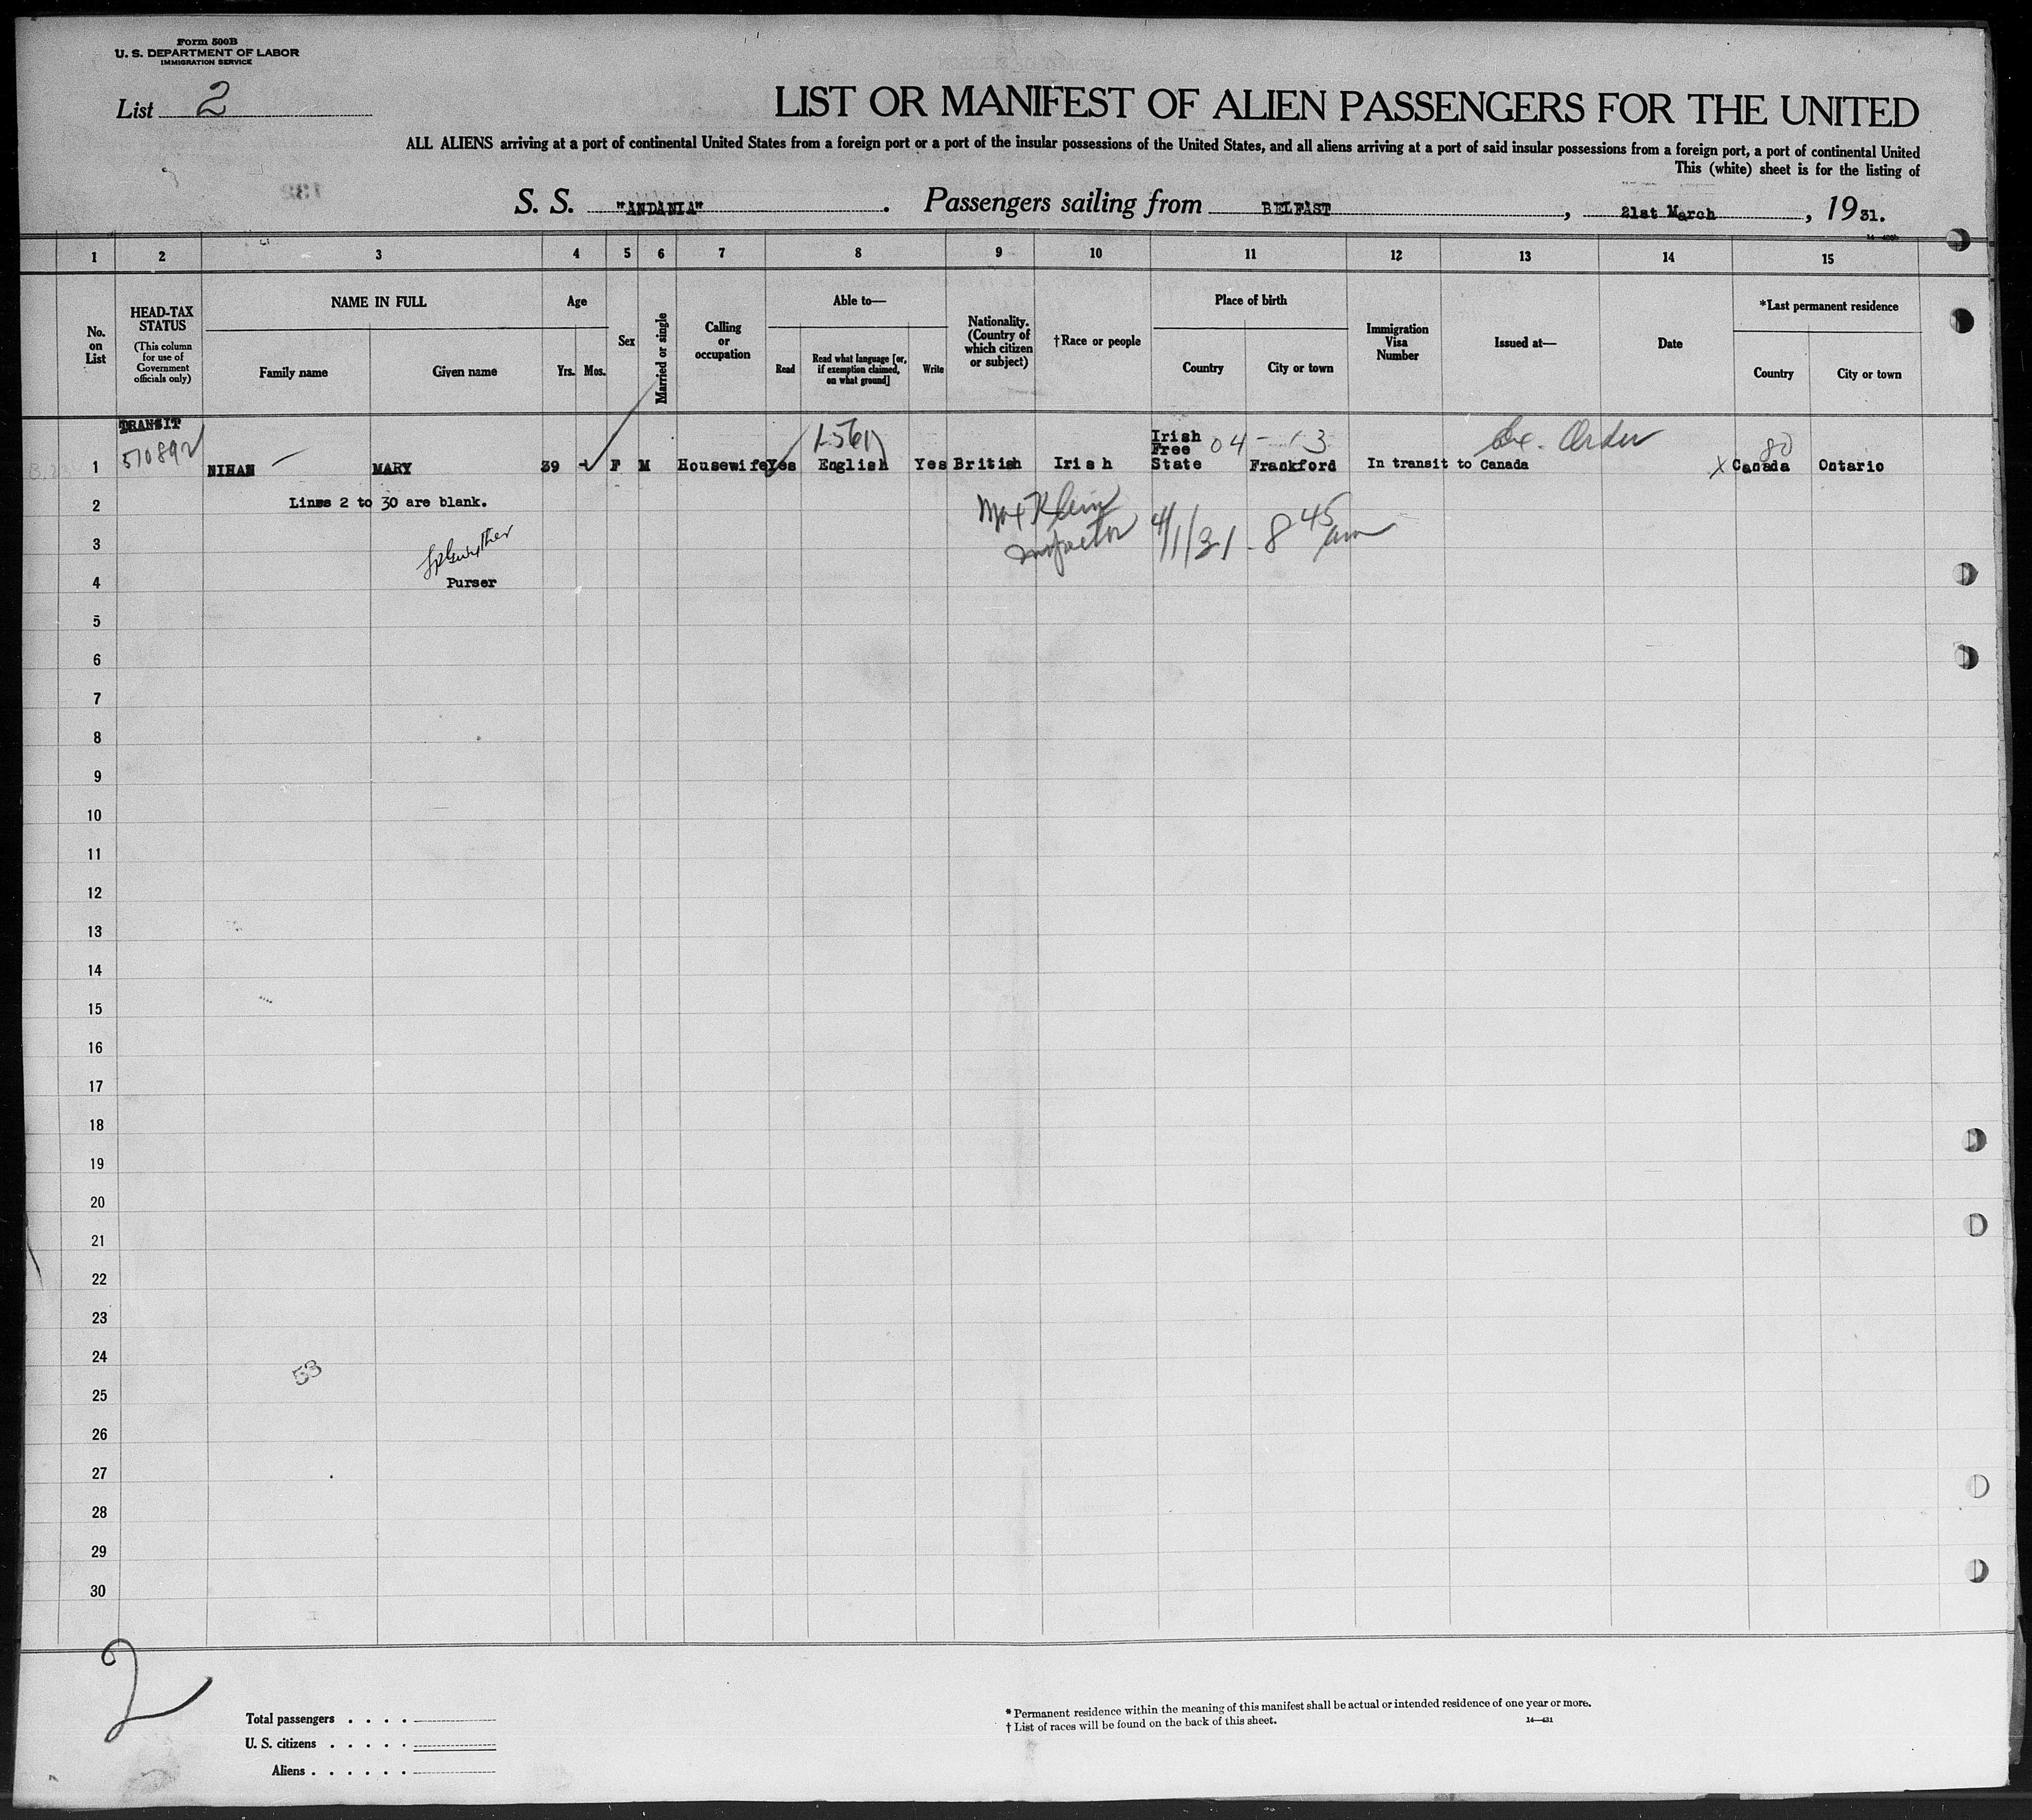 Form 500B
U. S. DEPARTMENT OF LABOR
IMMIGRATION SERVICE
List 2
LIST OR MANIFEST OF ALIEN PASSENGERS FOR THE UNITED
ALL ALIENS arriving at a port of continental United States from a foreign port or a port of the insular possessions of the United States, and all aliens arriving at a port of said insular possessions from a foreign port, a port of continental United
This (white) sheet is for the listing of
S. S. "ANDANIA". Passengers sailing from BELFAST, 21st March, 1931.
1 2 3 4 5 6 7 8 9 10 11 12 13 14 15
No. on List
HEAD-TAX STATUS
(This column for use of Government officials only)
NAME IN FULL
Family name Given name
Age
Yrs. Mos.
Sex
Married or single
Calling or occupation
Able to—
Read
Read what language [or, if exemption claimed, on what ground]
Write
Nationality. (Country of which citizen or subject)
†Race or people
Place of birth
Country City or town
Immigration Visa Number
Issued at—
Date
*Last permanent residence
Country City or town
TRANSIT
510892
Ex. Order
04 - 80
1 NIHAN MARY 39 - F M Housewife Yes English Yes British Irish Irish Free State Frankford In transit to Canada X Canada Ontario
2 Lines 2 to 30 are blank.
Max Klein
Inspector 4/1/31 - 8 45 am
3
4 Purser
5
6
7
8
9
10
11
12
13
14
15
16
17
18
19
20
21
22
23
24
53
25
26
27
28
29
30
2
Total passengers . . . .
U. S. citizens . . . . .
Aliens . . . . . .
* Permanent residence within the meaning of this manifest shall be actual or intended residence of one year or more.
† List of races will be found on the back of this sheet.
14—431